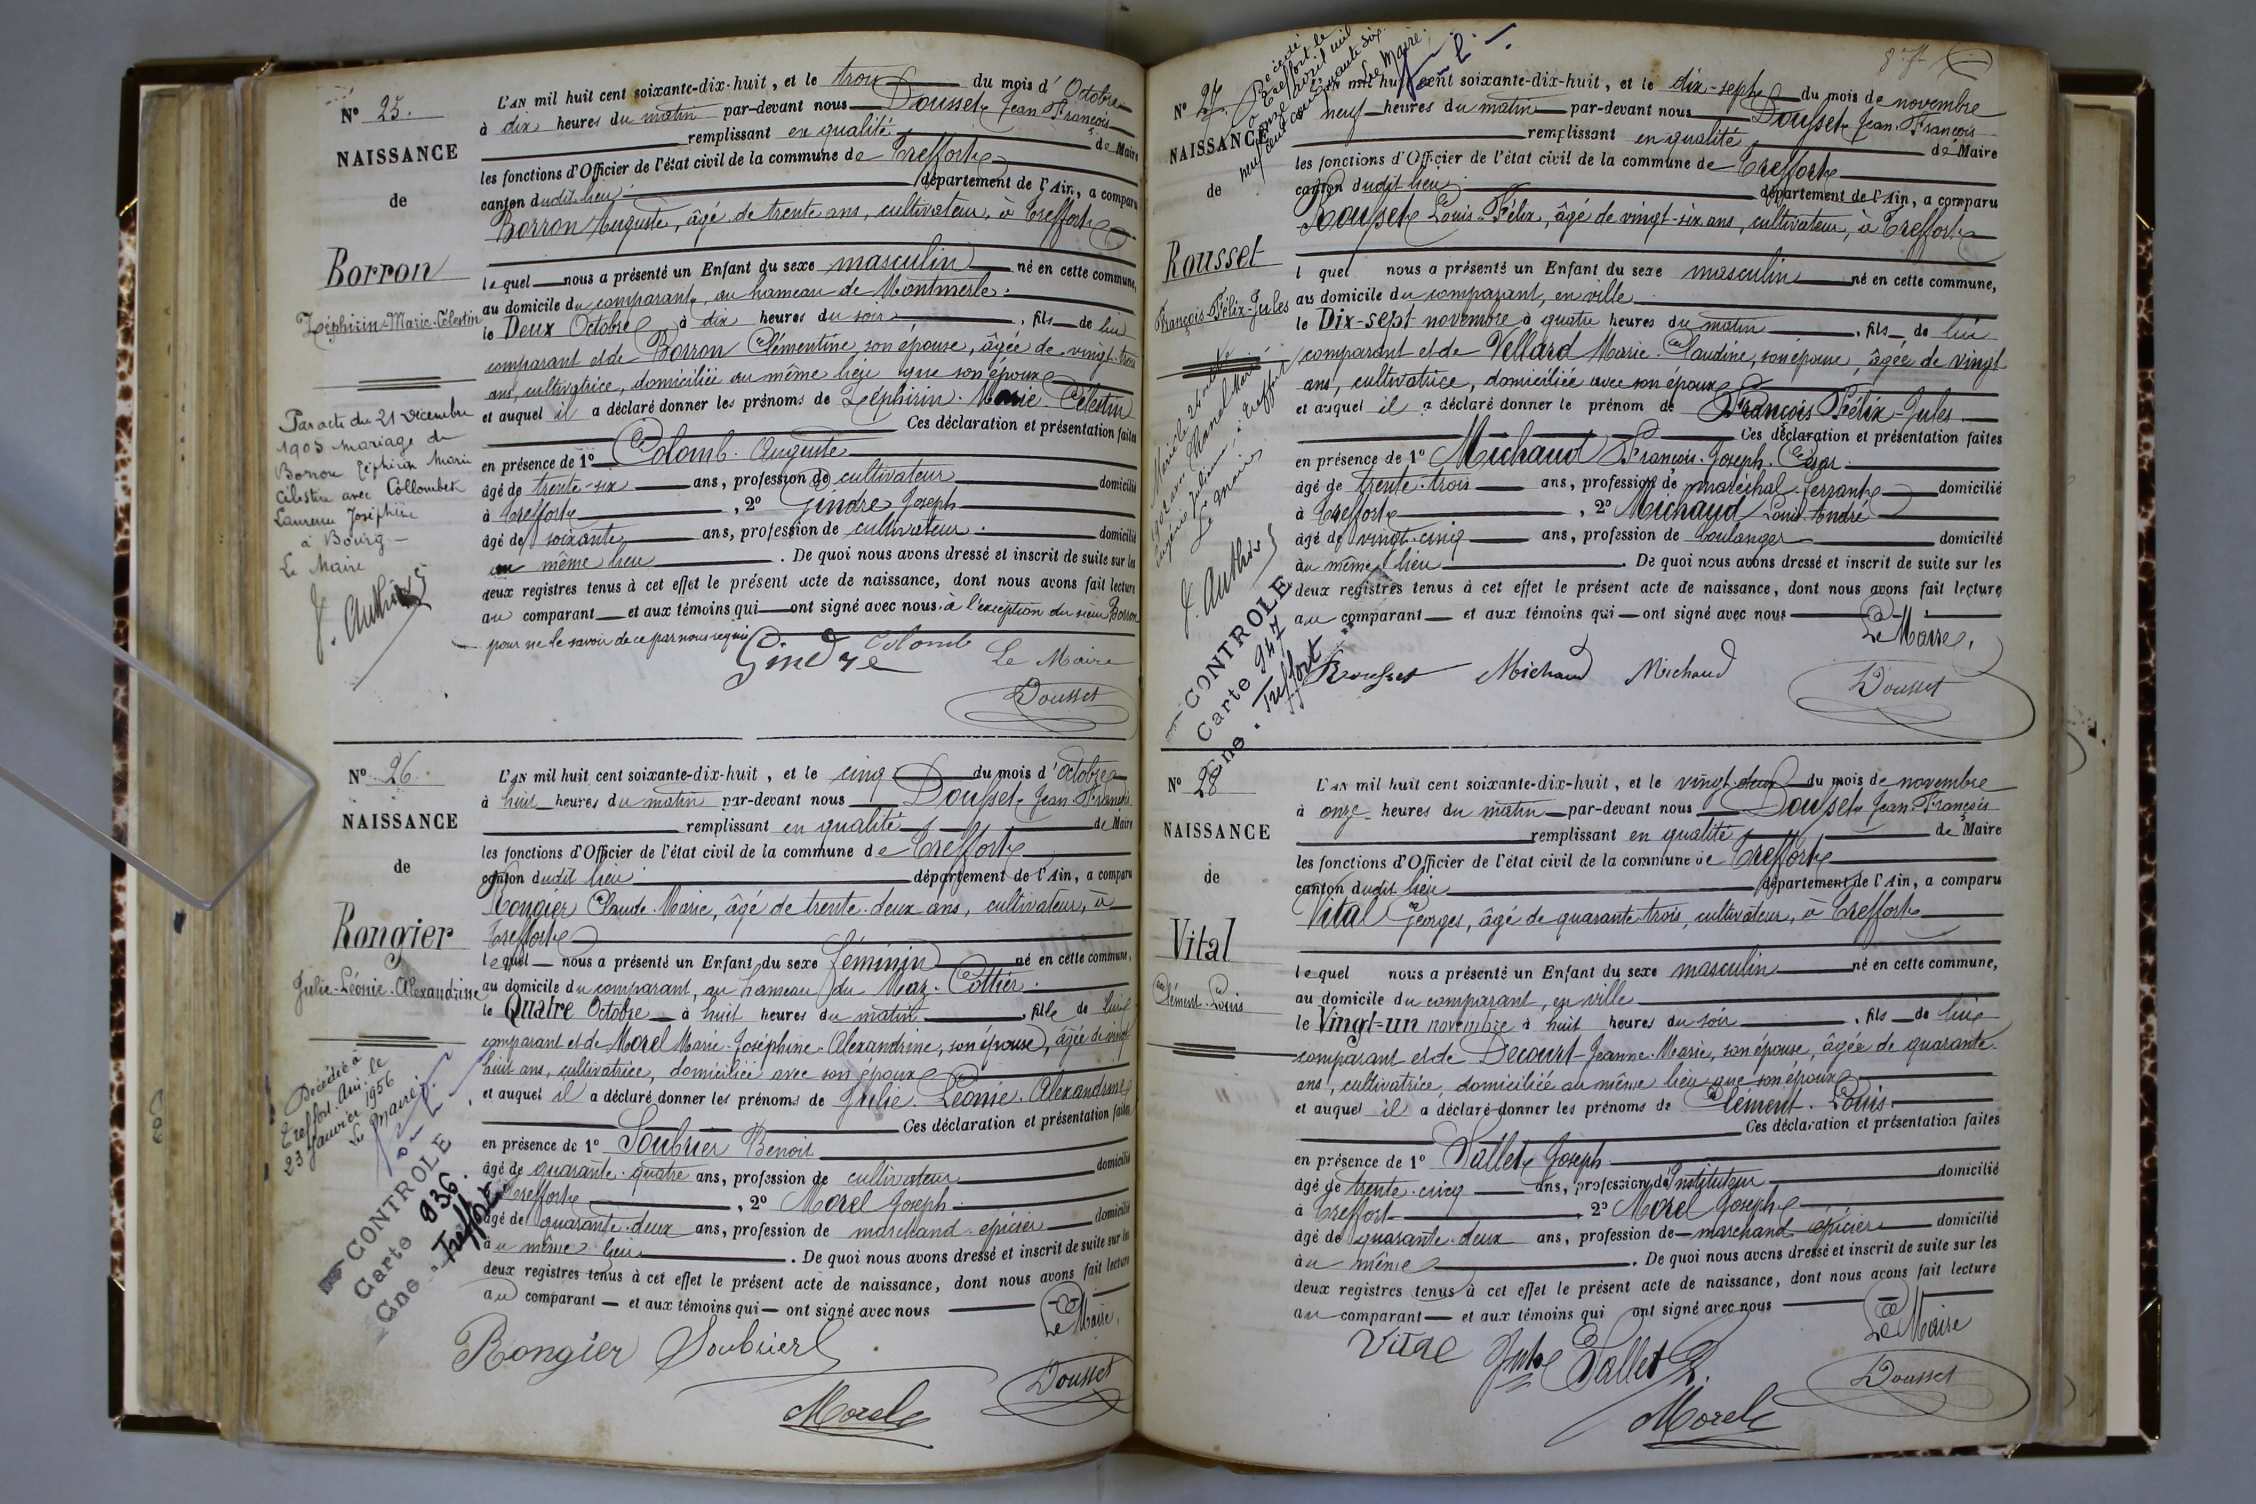 Nº 25.
NAISSANCE
de
Borron
Zéphirin-Marie-Célestin
Par acte du 21 décembre
1905 mariage de
Borron Zéphirin Marie
Célestin avec Collombet
Laurence Joséphine
à Bourg
Le Maire
L'AN mil huit cent soixante-dix-huit, et le trois du mois d'Octobre
à dix heures du matin par-devant nous Dousset Jean-François
remplissant en qualité de Maire
les fonctions d'Officier de l'état civil de la commune de Treffort
canton dudit lieu département de l'Ain, a comparu
Borron Auguste, âgé de trente ans, cultivateur, à Treffort
lequel nous a présenté un Enfant du sexe masculin né en cette commune,
au domicile du comparant, au hameau de Montmerle.
le Deux Octobre à dix heures du soir, fils de lui
comparant et de Borron Clémentine son épouse, âgée de vingt-trois
ans, cultivatrice, domiciliée au même lieu que son époux
et auquel il a déclaré donner les prénoms de Zéphirin-Marie-Célestin
Ces déclaration et présentation faites
en présence de 1º Colomb Auguste
âgé de trente-six ans, profession de cultivateur domicilié
à Treffort, 2º Gindre Joseph
âgé de soixante ans, profession de cultivateur. domicilié
au même lieu. De quoi nous avons dressé et inscrit de suite sur les
deux registres tenus à cet effet le présent acte de naissance, dont nous avons fait lecture
au comparant et aux témoins qui ont signé avec nous à l'exception du sieur Borron
pour ne le savoir de ce par nous requis
Gindre Colomb Le Maire
Dousset
Nº 26.
NAISSANCE
de
Rongier
Julie-Léonie-Alexandrine
Décédée à
Treffort Ain le
23 janvier 1956
Le Maire.
CONTROLE
Carte 936.
Cne. Treffort
L'AN mil huit cent soixante-dix-huit, et le cinq du mois d'Octobre
à huit heures du matin par-devant nous Dousset Jean-François
remplissant en qualité de Maire
les fonctions d'Officier de l'état civil de la commune de Treffort
canton dudit lieu département de l'Ain, a comparu
Rongier Claude-Marie, âgé de trente-deux ans, cultivateur, à
Treffort
lequel nous a présenté un Enfant du sexe féminin né en cette commune,
au domicile du comparant, au hameau du Maz-Cottier.
le Quatre Octobre à huit heures du matin, fille de lui
comparant et de Morel Marie-Joséphine-Alexandrine, son épouse, âgée de vingt
huit ans, cultivatrice, domiciliée avec son époux
et auquel il a déclaré donner les prénoms de Julie-Léonie-Alexandrine
Ces déclaration et présentation faites
en présence de 1º Soubrier Benoit
âgé de quarante-quatre ans, profession de cultivateur domicilié
à Treffort, 2º Morel Joseph
âgé de quarante-deux ans, profession de marchand-épicier domicilié
au même lieu. De quoi nous avons dressé et inscrit de suite sur les
deux registres tenus à cet effet le présent acte de naissance, dont nous avons fait lecture
au comparant et aux témoins qui ont signé avec nous
Le Maire,
Rongier Soubrier
Morel Dousset
Nº 27.
NAISSANCE
de
Rousset
François-Félix-Jules
Décédé
à Treffort le
onze avril mil
neuf cent cinquante six.
Le Maire.
Le Maire
CONTROLE
Carte 947
Cne. Treffort
L'AN mil huit cent soixante-dix-huit, et le dix-sept du mois de novembre
neuf heures du matin par-devant nous Dousset Jean-François
remplissant en qualité de Maire
les fonctions d'Officier de l'état civil de la commune de Treffort
canton dudit lieu département de l'Ain, a comparu
Rousset Louis-Félix, âgé de vingt-six ans, cultivateur, à Treffort
l quel nous a présenté un Enfant du sexe masculin né en cette commune,
au domicile du comparant, en ville
le Dix-sept novembre à quatre heures du matin, fils de lui
comparant et de Vellard Marie-Claudine, son épouse, âgée de vingt
ans, cultivatrice, domiciliée avec son époux
et auquel il a déclaré donner le prénom de François-Félix-Jules
Ces déclaration et présentation faites
en présence de 1º Michaud François-Joseph-César.
âgé de trente-trois ans, profession de maréchal-ferrant domicilié
à Treffort, 2º Michaud Louis-André
âgé de vingt-cinq ans, profession de boulanger domicilié
au même lieu. De quoi nous avons dressé et inscrit de suite sur les
deux registres tenus à cet effet le présent acte de naissance, dont nous avons fait lecture
au comparant et aux témoins qui ont signé avec nous
Le Maire,
Rousset Michaud Michaud Dousset
Nº 28
NAISSANCE
de
Vital
Clément-Louis
L'AN mil huit cent soixante-dix-huit, et le vingt-deux du mois de novembre
à onze heures du matin par-devant nous Dousset Jean-François
remplissant en qualité de Maire
les fonctions d'Officier de l'état civil de la commune de Treffort
canton dudit lieu département de l'Ain, a comparu
Vital Georges, âgé de quarante-trois, cultivateur, à Treffort
lequel nous a présenté un Enfant du sexe masculin né en cette commune,
au domicile du comparant, en ville
le Vingt-un novembre à huit heures du soir, fils de lui
comparant et de Decourt Jeanne-Marie, son épouse, âgée de quarante
ans, cultivatrice, domiciliée au même lieu que son époux
et auquel il a déclaré donner les prénoms de Clément-Louis.
Ces déclaration et présentation faites
en présence de 1º Sallet Joseph
âgé de trente-cinq ans, profession d'Instituteur domicilié
à Treffort, 2º Morel Joseph
âgé de quarante-deux ans, profession de marchand épicier domicilié
au même. De quoi nous avons dressé et inscrit de suite sur les
deux registres tenus à cet effet le présent acte de naissance, dont nous avons fait lecture
au comparant et aux témoins qui ont signé avec nous
Le Maire
Vital Sallet
Morel Dousset